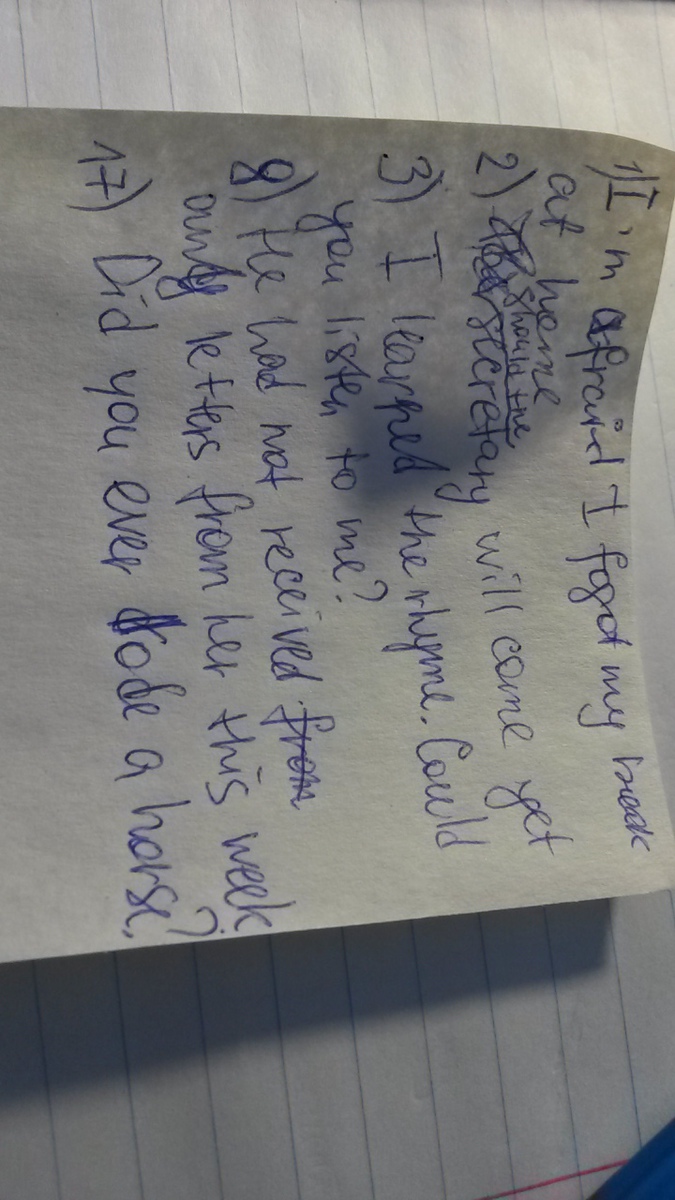 1) I'm afraid I fogot my book
at home
should the
2) secretary will come yet
3) I learned the rhyme. Could
you listen to me?
8) He had not received from
any letters from her this week
17) Did you ever rode a horse?